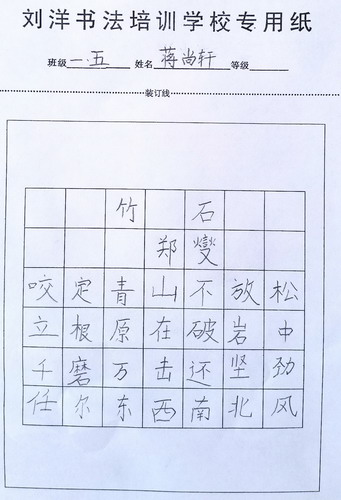 刘洋书法培训学校专用纸
班级 一.五 姓名 蒋尚轩 等级
装订线
竹 石
郑 燮
咬 定 青 山 不 放 松
立 根 原 在 破 岩 中
千 磨 万 击 还 坚 劲
任 尔 东 西 南 北 风